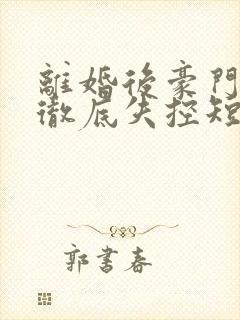 離婚後豪門
徹底失控短
郭書春